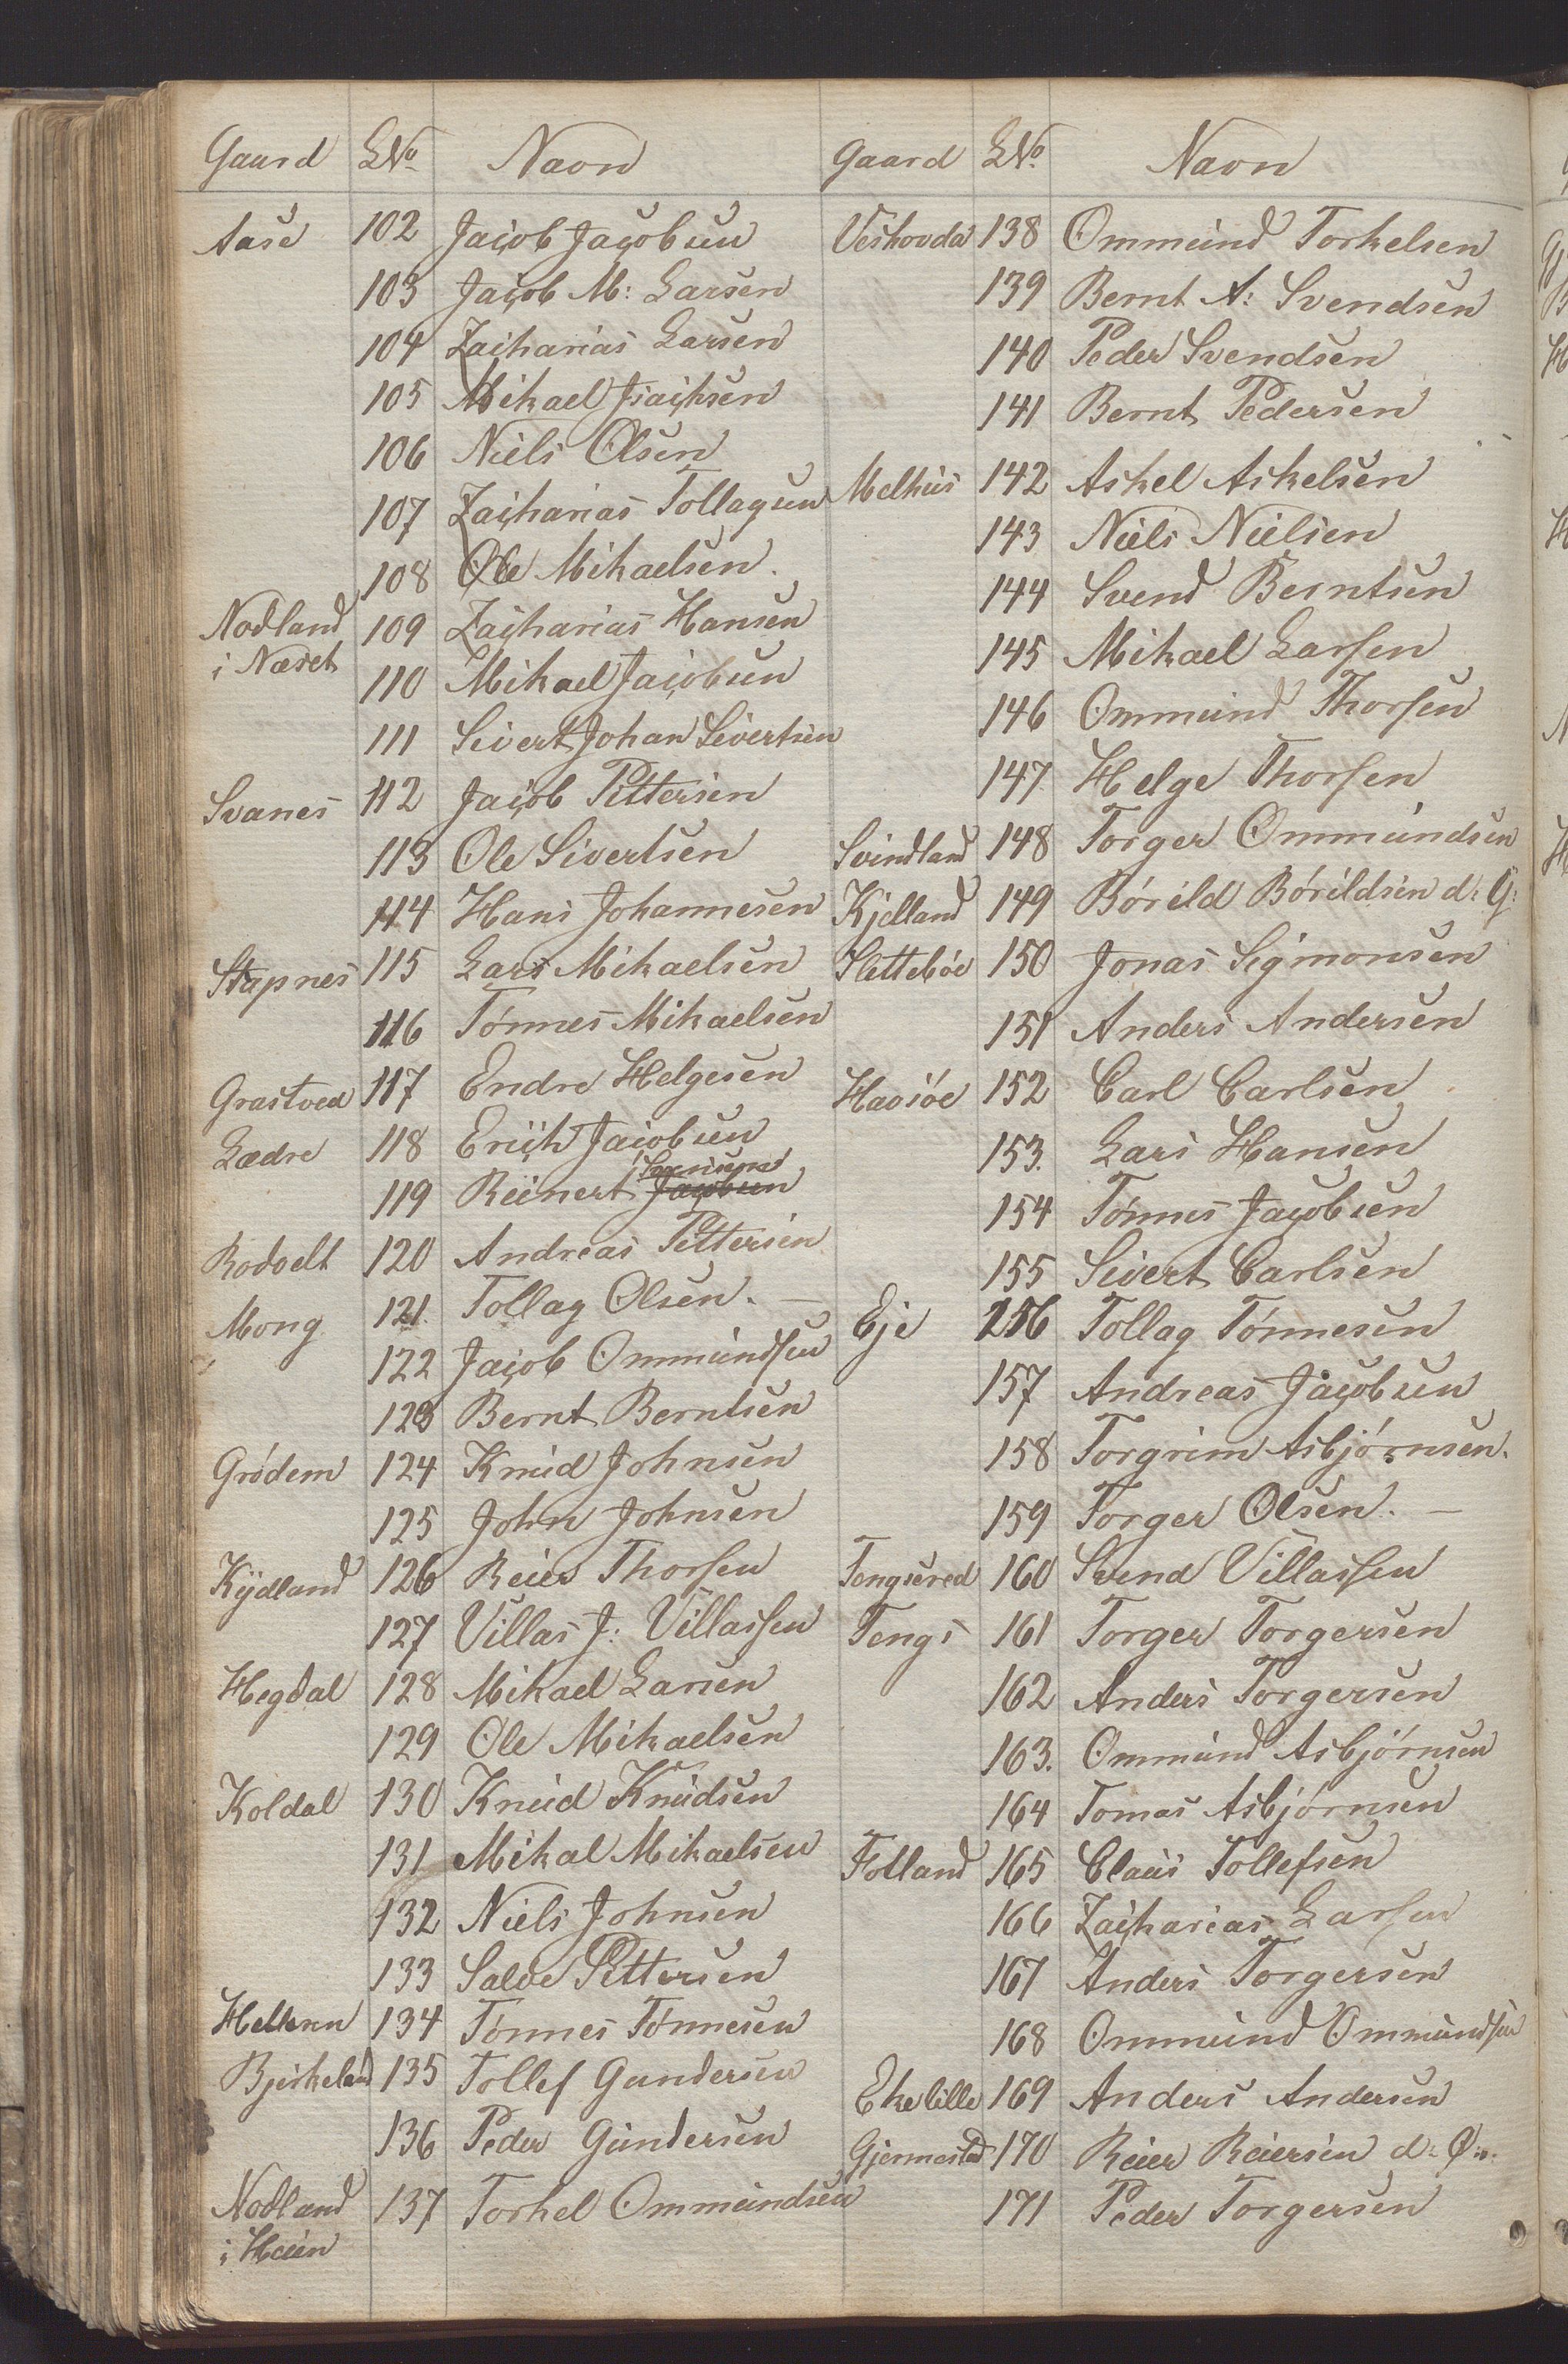 Gaard LNo Navn
Aase 102 Jacob Jacobsen
103 Jacob M: Larsen
104 Zacharias Larsen
105 Mikael Isachsen
106 Niels Olsen
107 Zacharias Tollagsen
108 Ole Mikaelsen.
Nodland 109 Zacharias Hansen
i Næset 110 Mikael Jacobsen
111 Sivert Johan Sivertsen
Svanes 112 Jacob Pettersen
113 Ole Sivertsen
114 Hans Johannesen
Stapnes 115 Lars Mikaelsen
116 Tónnes Mikaelsen
Grastved 117 Endre Helgesen
Lædre 118 Erich Jacobsen
119 Reinert Jacobsen
Rodvelt 120 Andreas Pettersen
Mong 121. Tollag Olsen. —
122 Jacob Ommundsen
123 Bernt Berntsen
Gródem 124 Knud Johnsen
125 John Johnsen
Kydland 126 Reier Thorsen
127 Villas J: Villassen
Hegdal 128 Mikael Larsen
129 Ole Mikaelsen
Koldal 130 Knud Knudsen
131 Mikal Mikaelsen
132 Niels Johnsen
133 Salve Pettersen
Helleren 134 Tónnes Tónnesen
Bjerkeland 135 Tollef Gundersen
136 Peder Gundersen
Nodland 137 Torkel Ommundsen
i Heien
Gaard LNo Navn
Veshovda 138 Ommund Torkelsen
139 Bernt A: Svendsen
140 Peder Svendsen
141 Bernt Pedersen
Melhus 142 Askel Askelsen
143 Niels Nielsen
144 Svend Berntsen
145 Mikael Larsen
146 Ommund Thorsen
147 Helge Thorsen
Svindland 148 Torger Ommundsen
Kjelland 149 Bórild Bórildsen d: G:
Slettebóe 150 Jonas Sigmonsen
151 Anders Andersen
Havsóe 152 Carl Carlsen
153. Lars Hansen
154 Tónnes Jacobsen
155 Sivert Carlsen
Eje 156 Tollag Tónnesen
157 Andreas Jacobsen
158 Torgrim Asbjórnsen.
159 Torger Olsen. —
Tengsered 160 Svend Villassen
Tengs 161 Torger Torgersen
162 Anders Torgersen
163. Ommund Asbjórnsen
164 Tomas Asbjórnsen
Fotland 165 Claus Tollefsen
166 Zacharias Larsen
167 Anders Torgersen
168 Ommund Ommundsen
Eke lille 169 Anders Andersen
Gjermestad 170 Reier Reiersen d: Ø:
171 Peder Torgersen